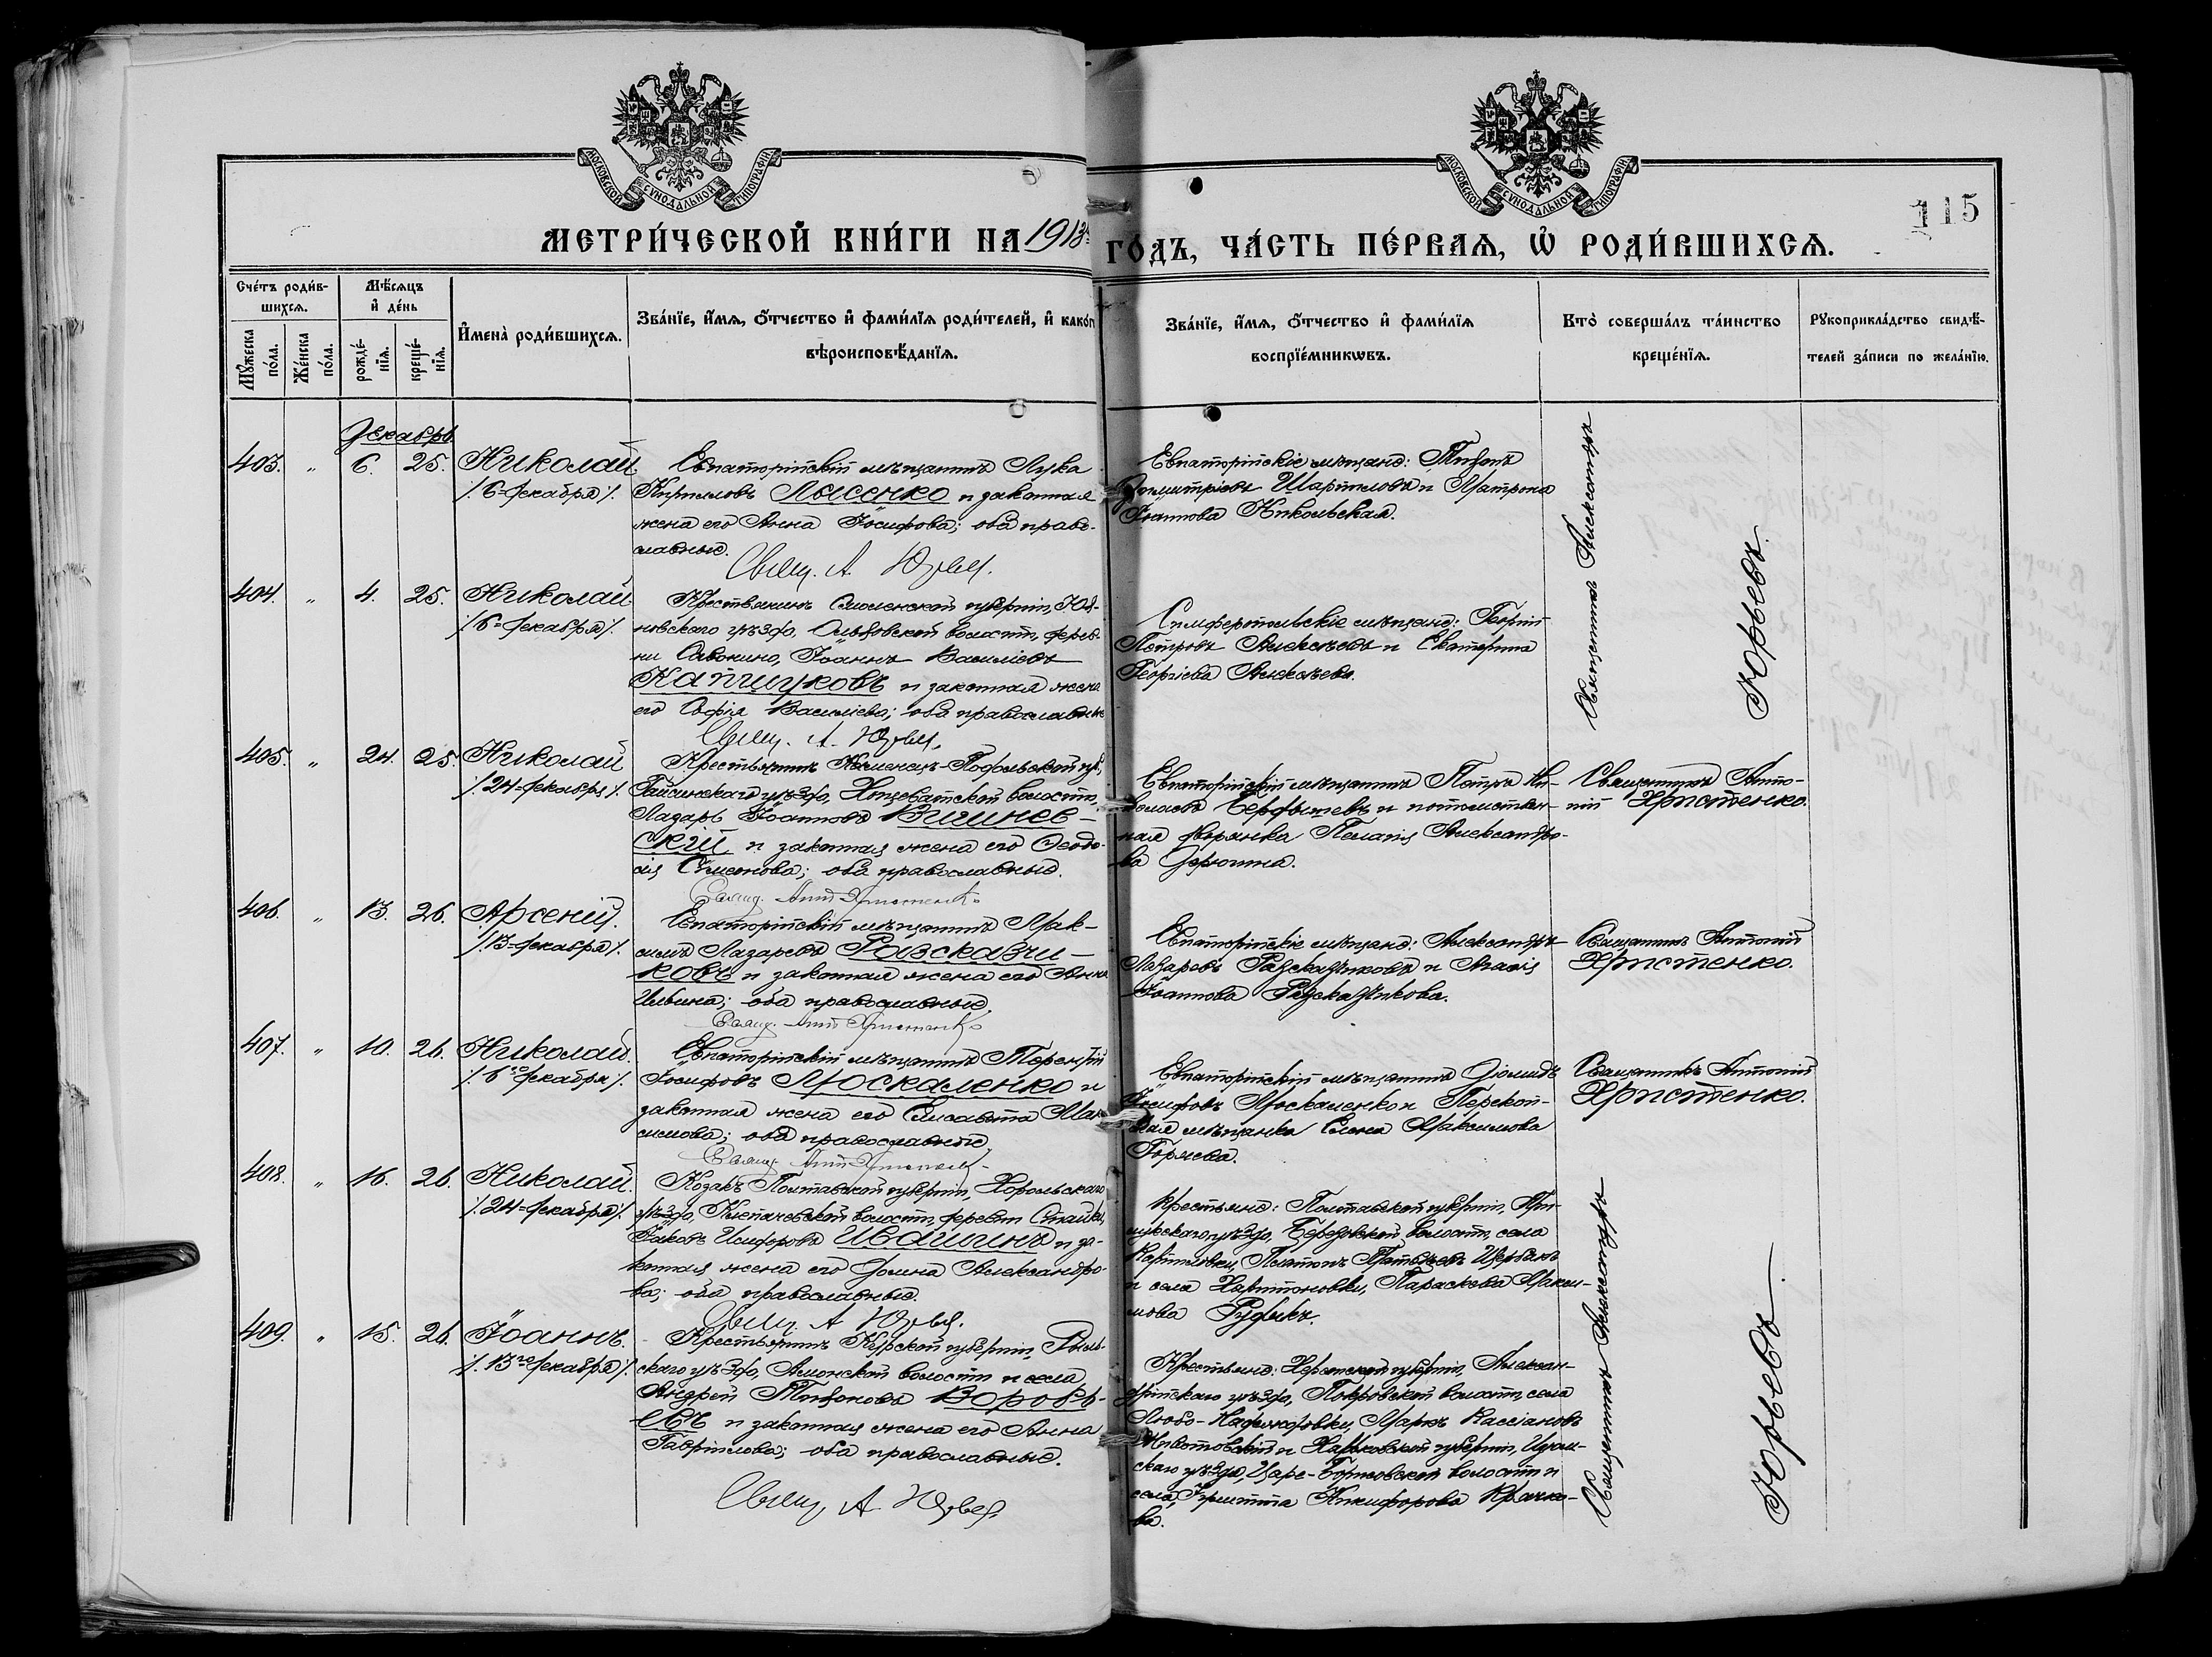 МОСКОВСКОЙ СѴНОДАЛЬНОЙ ТИПОГРАФІИ
МОСКОВСКОЙ СѴНОДАЛЬНОЙ ТИПОГРАФІИ
115
МЕТРИ́ЧЕСКОЙ КНИ́ГИ НА 1913
ГО́ДЪ, ЧА́СТЬ ПЕ́РВАЯ, Ѡ҆ РОДИ́ВШИХСЯ.
Сче́тъ роди́в-
шихся.
Мѣ́сяцъ
и҆ де́нь
Мꙋ́жеска
по́ла.
Же́нска
по́ла.
рожде́-
нїя.
креще́-
нїя.
И҆мена̀ роди́вшихся.
Зва́нїе, и҆́мя, о҆́тчество и҆ фами́лїя роди́телей, и҆ како́г
вѣроисповѣ́данїя.
Зва́нїе, и҆́мя, о҆́тчество и҆ фами́лїя
воспрїе́мникѡвъ.
Кто̀ соверша́лъ та́инство
креще́нїя.
Рꙋкоприкла́дство свидѣ́-
телей за́писи по жела́нїю.
Декабрь
403. " 6. 25. Николай
/. 6=декабря ./.
Евпаторійскій мѣщанинъ Лука
Кирилловъ Лысенко и законная
жена его Анна Іосифова; оба право-
славные.
Свящ. А Юрьев.
Евпаторійскіе мѣщане: Тихонъ
Димитріевъ Шартиловъ и Матрона
Іоаннова Никольская.
Священникъ Александръ
Юрьевъ.
404. " 4. 25. Николай
/. 6=декабря ./.
Крестьянинъ Смоленской губерніи, Юх-
новскаго уѣзда, Ольховской волости, дерев-
ни Савонино, Іоаннъ Василіевъ
Капшуковъ и законная жена
его Софія Василіева; оба православные
Свящ. А. Юрьев.
Симферопольскіе мѣщане: Георгій
Петровъ Алексѣевъ и Екатерина
Георгіева Алексѣева.
405. " 24. 25. Николай
/. 24=декабря ./.
Крестьянинъ Каменецъ-Подольской губ.,
Гайсинскаго уѣзда, Хощеватской волости,
Лазарь Іоанновъ Вишнев-
скій и законная жена его Ѳеодо-
сія Симеонова; оба православные.
Свящ. Ант Христенко
Евпаторійскій мѣщанинъ Петръ Ни-
колаевъ и потомствен-
ная дворянка Пелагія Александро-
ва Дерюгина.
Священникъ Анто-
ній Христенко.
406. " 13. 26. Арсеній.
/. 13=декабря ./.
Евпаторійскій мѣщанинъ Мак-
симъ Лазаревъ Разсказчи-
ковъ и законная жена его Анна
Ильина; оба православные.
Свящ. Ант Христенко
Евпаторійскіе мѣщане: Александръ
Лазаревъ Разсказчиковъ и Агаѳія
Іоаннова Разсказчикова.
Священникъ Антоній
Христенко.
407. " 10. 26. Николай.
/. 6го декабря ./.
Евпаторійскій мѣщанинъ Терентій
Іосифовъ Москаленко и
законная жена его Елисавета Мак
симова; оба православные.
Свящ. Ант Христенко
Евпаторійскій мѣщанинъ Діомидъ
Іосифовъ Москаленко и Перекоп-
ская мѣщанка Елена Максимова
Горяева.
Священникъ Антоній
Христенко.
408. " 16. 26. Николай.
/. 24=декабря ./.
Козакъ Полтавской губерніи, Хорольскаго
уѣзда, Клепачевской волости, деревни Стайки,
Іаковъ Исидоровъ Ивашинъ и за-
конная жена его Домна Александро-
ва; оба православные.
Свящ. А Юрьев.
Крестьяне: Полтавской губерніи, При-
лукскаго уѣзда, Березовской волости, села
Платонъ Матвѣевъ Щербакъ
и села Харитоновки, Параскева Макси-
мова Рудыкъ.
Священникъ Александръ
Юрьевъ.
409. " 15. 26. Іоаннъ.
/. 13го декабря ./.
Крестьянинъ Курской губерніи, Рыль-
скаго уѣзда, Амонской волости и села,
Андрей Тихоновъ Воробь-
евъ и законная жена его Анна
Гавріилова; оба православные.
Свящ А. Юрьев.
Крестьяне: Херсонской губерніи, Алексан-
дрійскаго уѣзда, Покровской волости, села
Любо-Надеждовки, Маркъ Кассіановъ
и Харьковской губерніи, Изюм-
скаго уѣзда, Царе-Борисовской волости и
села, Никифорова Крячко-
ва.